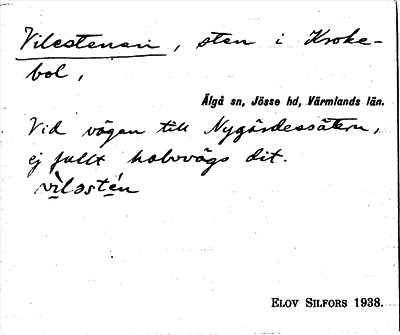 Vilestenen, sten i Kroke-
bol,
Älgå sn, Jösse hd, Värmlands län.
Vid vägen till Nygårdessätern,
ej fullt halvvägs dit.
vìləstén
ELOV SILFORS 1938.